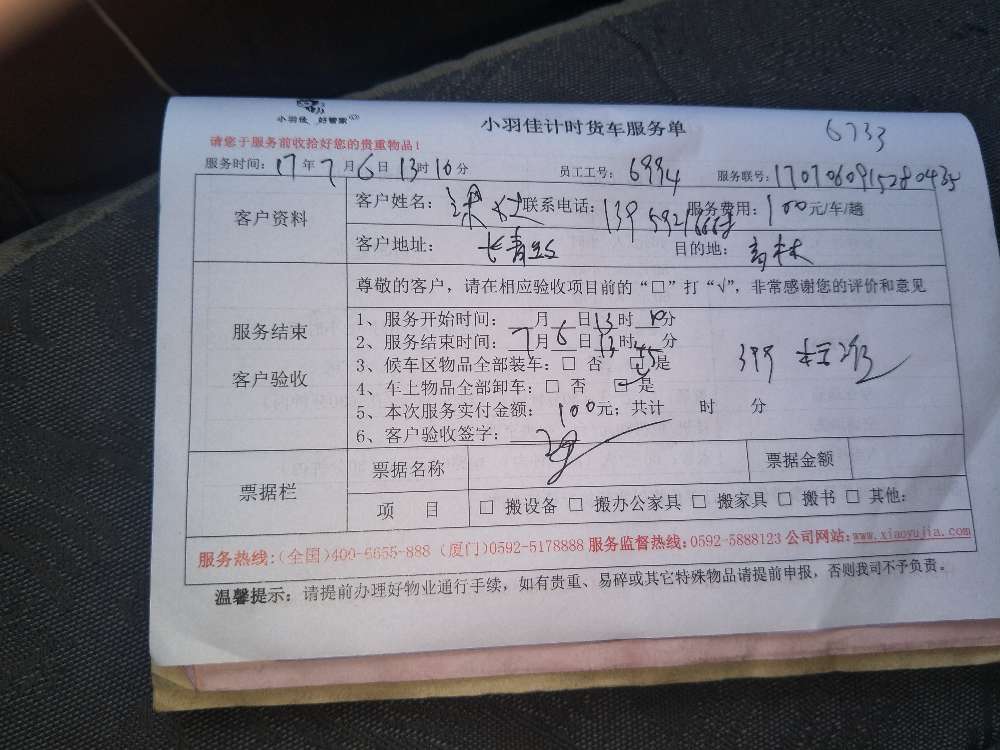 小羽佳 好管家
小羽佳计时货车服务单
6733
请您于服务前收拾好您的贵重物品!
服务时间: 17年7月6日13时10分 员工工号: 6994 服务联号: 17070609152804
客户资料
客户姓名: 梁 联系电话: 139 服务费用: 100元/车/趟
客户地址: 长青 目的地:
服务结束
客户验收
尊敬的客户,请在相应验收项目前的“□”打“√”,非常感谢您的评价和意见
1、服务开始时间: 月 日13时10分
2、服务结束时间: 7月6日13时45分
3、候车区物品全部装车: □ 否 □是
4、车上物品全部卸车: □ 否 □是
5、本次服务实付金额: 100元; 共计 时 分
6、客户验收签字: 梁
399
票据栏
票据名称 票据金额
项 目 □ 搬设备 □ 搬办公家具 □ 搬家具 □ 搬书 □ 其他:
服务热线:(全国)400-6655-888 (厦门)0592-5178888 服务监督热线:0592-5888123 公司网站:www.xiaoyujia.com
温馨提示: 请提前办理好物业通行手续,如有贵重、易碎或其它特殊物品请提前申报,否则我司不予负责。